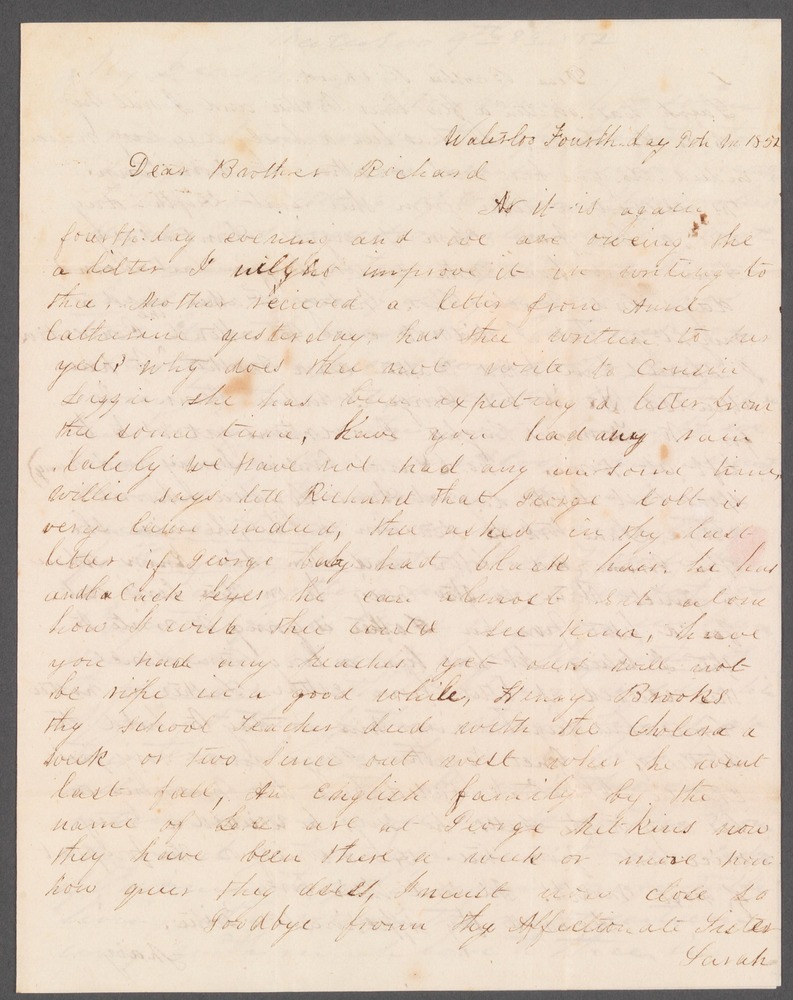 Waterloo Fourth day 9th m 1851
Dear Brother Richard
As it is again
fourth day evening and we are oweing the
a letter I will improve it in writing to
thee Mother recieved a letter from Aunt
Catherine yesterday has thee written to her
yet? why does thee not write to Cousin
Liggie she has been expecting a letter from
the some time, have you had any rain
lately we have not had any in some time,
Willie says tell Richard that George Colt is
very lame indeed, thee asked in thy last
letter if George baby had black hair. he has
and black eyes he can almost set alone
how I wish thee could see him, have
you had any peaches yet ours will not
be ripe in a good while, Henry Brooks
thy school teacher died with the Cholera a
week or two since out west where he went
last fall, An English family by the
name of are at George now
they have been there a week or more now
how queer they dress, I must now close so
Goodbye from thy Affectionate Sister
Sarah